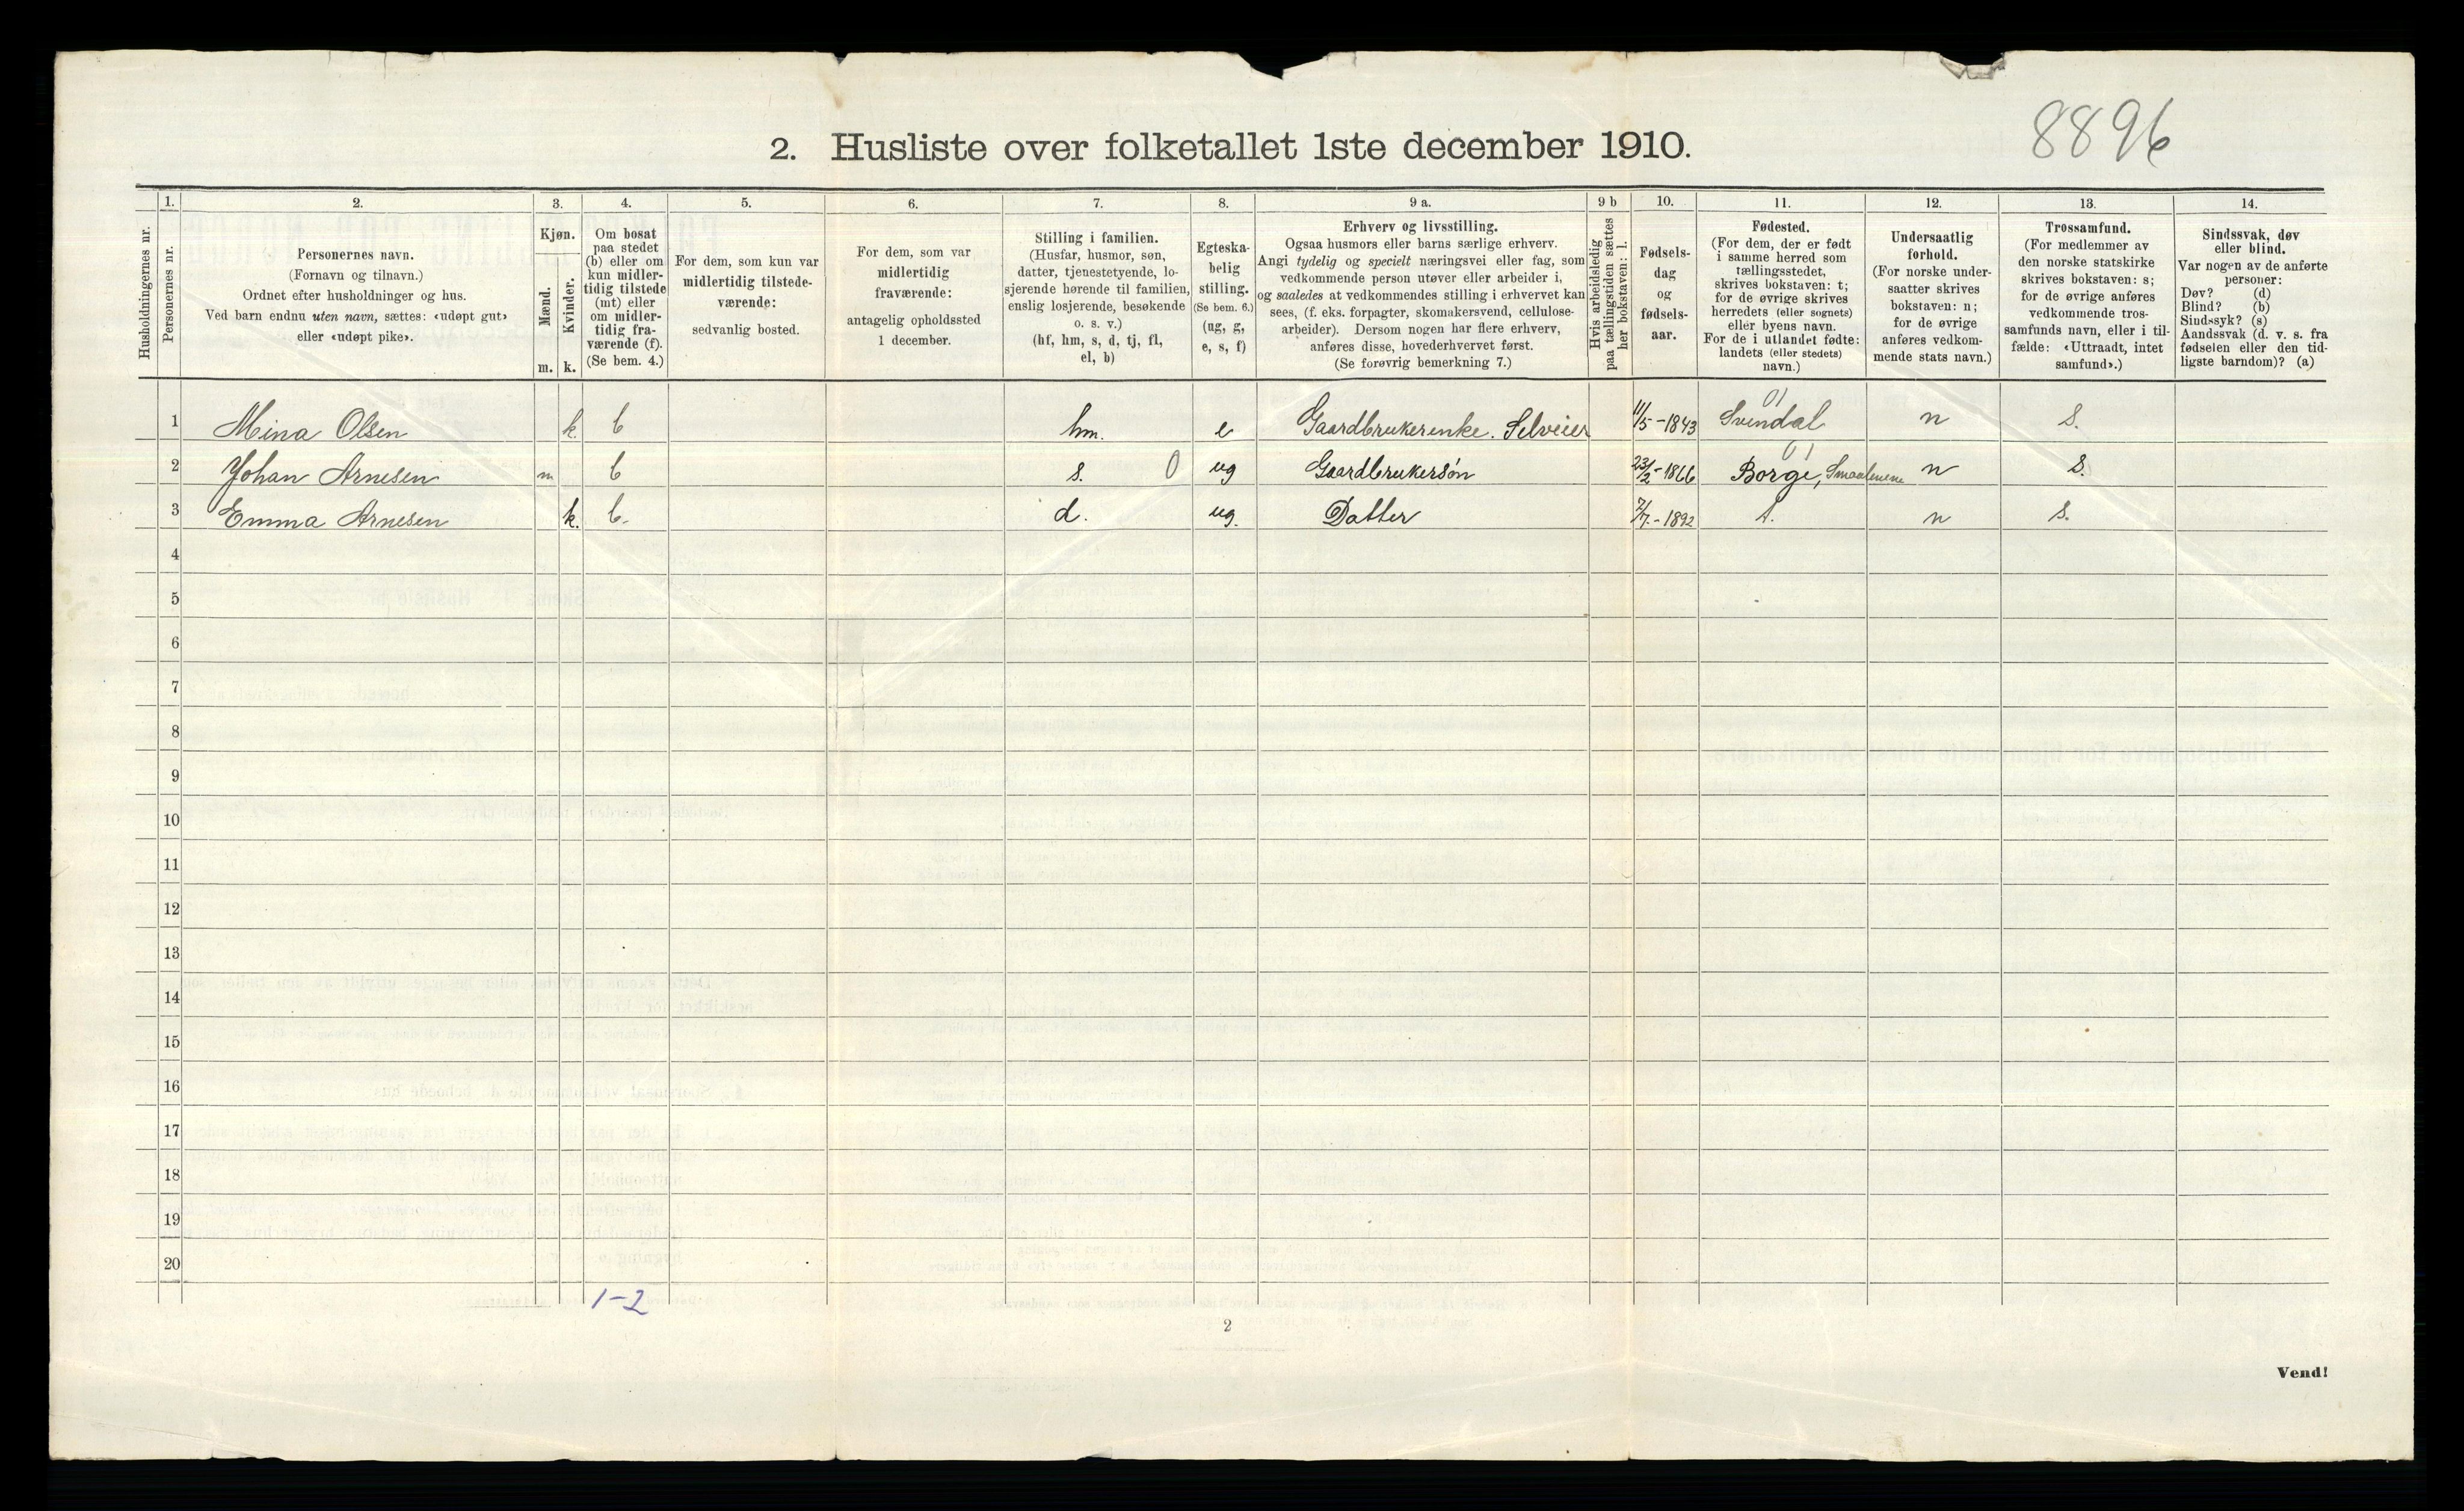 8896
2. Husliste over folketallet 1ste december 1910.
Husholdningernes nr.
1.
Personernes nr.
2.
Personernes navn.
(Fornavn og tilnavn.)
Ordnet efter husholdninger og hus.
Ved barn endnu uten navn, sættes: «udøpt gut»
eller «udøpt pike».
3.
Kjøn.
Mænd.
m.
Kvinder.
k.
4.
Om bosat
paa stedet
(b) eller om
kun midler-
tidig tilstede
(mt) eller
om midler-
tidig fra-
værende (f).
(Se bem. 4.)
5.
For dem, som kun var
midlertidig tilstede-
værende:
sedvanlig bosted.
6.
For dem, som var
midlertidig
fraværende:
antagelig opholdssted
1 december.
7.
Stilling i familien.
(Husfar, husmor, søn,
datter, tjenestetyende, lo-
sjerende hørende til familien,
enslig losjerende, besøkende
o. s. v.)
(hf, hm, s, d, tj, fl,
el, b)
8.
Egteska-
belig
stilling.
(Se bem. 6.)
(ug, g,
e, s, f)
9 a.
Erhverv og livsstilling.
Ogsaa husmors eller barns særlige erhverv.
Angi tydelig og specielt næringsvei eller fag, som
vedkommende person utøver eller arbeider i,
og saaledes at vedkommendes stilling i erhvervet kan
sees, (f. eks. forpagter, skomakersvend, cellulose-
arbeider). Dersom nogen har flere erhverv,
anføres disse, hovederhvervet først.
(Se forøvrig bemerkning 7.)
9 b
Hvis arbeidsledig
paa tællingstiden sættes
her bokstaven: l.
10.
Fødsels-
dag
og
fødsels-
aar.
11.
Fødested.
(For dem, der er født
i samme herred som
tællingsstedet,
skrives bokstaven: t;
for de øvrige skrives
herredets (eller sognets)
eller byens navn.
For de i utlandet fødte:
landets (eller stedets)
navn.)
12.
Undersaatlig
forhold.
(For norske under-
saatter skrives
bokstaven: n;
for de øvrige
anføres vedkom-
mende stats navn.)
13.
Trossamfund.
(For medlemmer av
den norske statskirke
skrives bokstaven: s;
for de øvrige anføres
vedkommende tros-
samfunds navn, eller i til-
fælde: «Uttraadt, intet
samfund».)
14.
Sindssvak, døv
eller blind.
Var nogen av de anførte
personer:
Døv? (d)
Blind? (b)
Sindssyk? (s)
Aandssvak (d. v. s. fra
fødselen eller den tid-
ligste barndom)? (a)
01
1 Mina Olsen k. b hm. e Gaardbrukerenke. Selveier 11/5-1843 Svendal n s.
01
2 Johan Arnesen m b s. 0 ug Gaardbrukersøn 23/2-1866 Borge, Smaalenene n s.
3 Emma Arnesen k. b. d. ug. Datter 7/7.-1892 t. n s.
4
5
6
7
8
9
10
11
12
13
14
15
16
17
18
19
20
1-2
2
Vend!